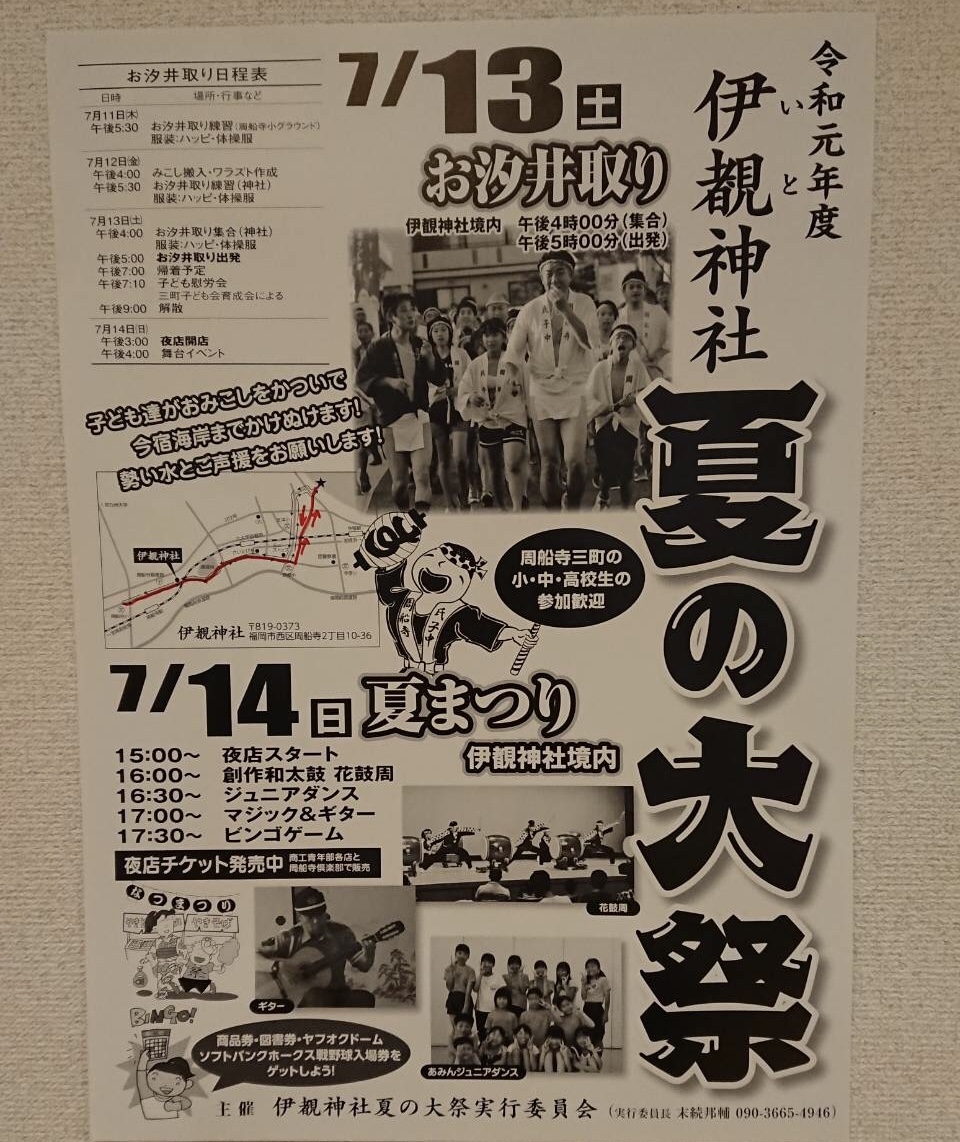 令和元年度
伊覩神社
いと
夏の大祭
お汐井取り日程表
日時 場所・行事など
7月11日(木)
午後5:30 お汐井取り練習(周船寺小グラウンド)
服装:ハッピ・体操服
7月12日(金)
午後4:00 みこし搬入・ワラズト作成
午後5:30 お汐井取り練習(神社)
服装:ハッピ・体操服
7月13日(土)
午後4:00 お汐井取り集合(神社)
服装:ハッピ・体操服
午後5:00 お汐井取り出発
午後7:00 帰着予定
午後7:10 子ども慰労会
三町子ども会育成会による
午後9:00 解散
7月14日(日)
午後3:00 夜店開店
午後4:00 舞台イベント
7/13 土
お汐井取り
伊覩神社境内 午後4時00分(集合)
午後5時00分(出発)
子ども達がおみこしをかついで
今宿海岸までかけぬけます!
勢い水とご声援をお願いします!
伊覩神社
伊覩神社 〒819-0373
福岡市西区周船寺2丁目10-36
周船寺
氏子中
周船寺三町の
小・中・高校生の
参加歓迎
7/14 日 夏まつり
伊覩神社境内
15:00〜 夜店スタート
16:00〜 創作和太鼓 花鼓周
16:30〜 ジュニアダンス
17:00〜 マジック&ギター
17:30〜 ビンゴゲーム
夜店チケット発売中 商工青年部各店と
周船寺倶楽部で販売
花鼓周
なつまつり
やきそば
ギター
あみんジュニアダンス
BINGO!
商品券・図書券・ヤフオクドーム
ソフトバンクホークス戦野球入場券を
ゲットしよう!
主催 伊覩神社夏の大祭実行委員会 (実行委員長 末続邦輔 090-3665-4946)